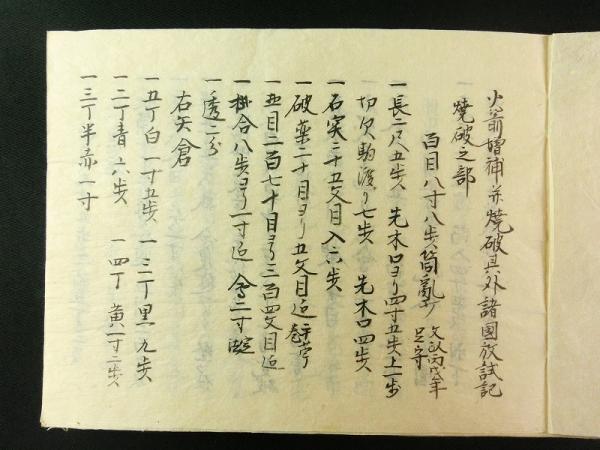 火箭増補并焼破其外諸國放試記
一 焼破之部
百目八寸八歩筒乱 文政丙戌年 足守
一長二尺五歩 先木口ヨリ四寸五歩上一歩
切欠駒渡り七歩 先木口四歩
一石実二十五文目入六歩
一破薬二十目ヨリ五文目迄
一玉目二百七十目ヨリ三百四文目迄
一掛合八歩ヨリ一寸迄
一透二分
右矢倉
一五丁白一寸五歩 一三丁黒一九歩
一二丁青一六歩 一四丁黄一寸二歩
一三丁半赤一寸